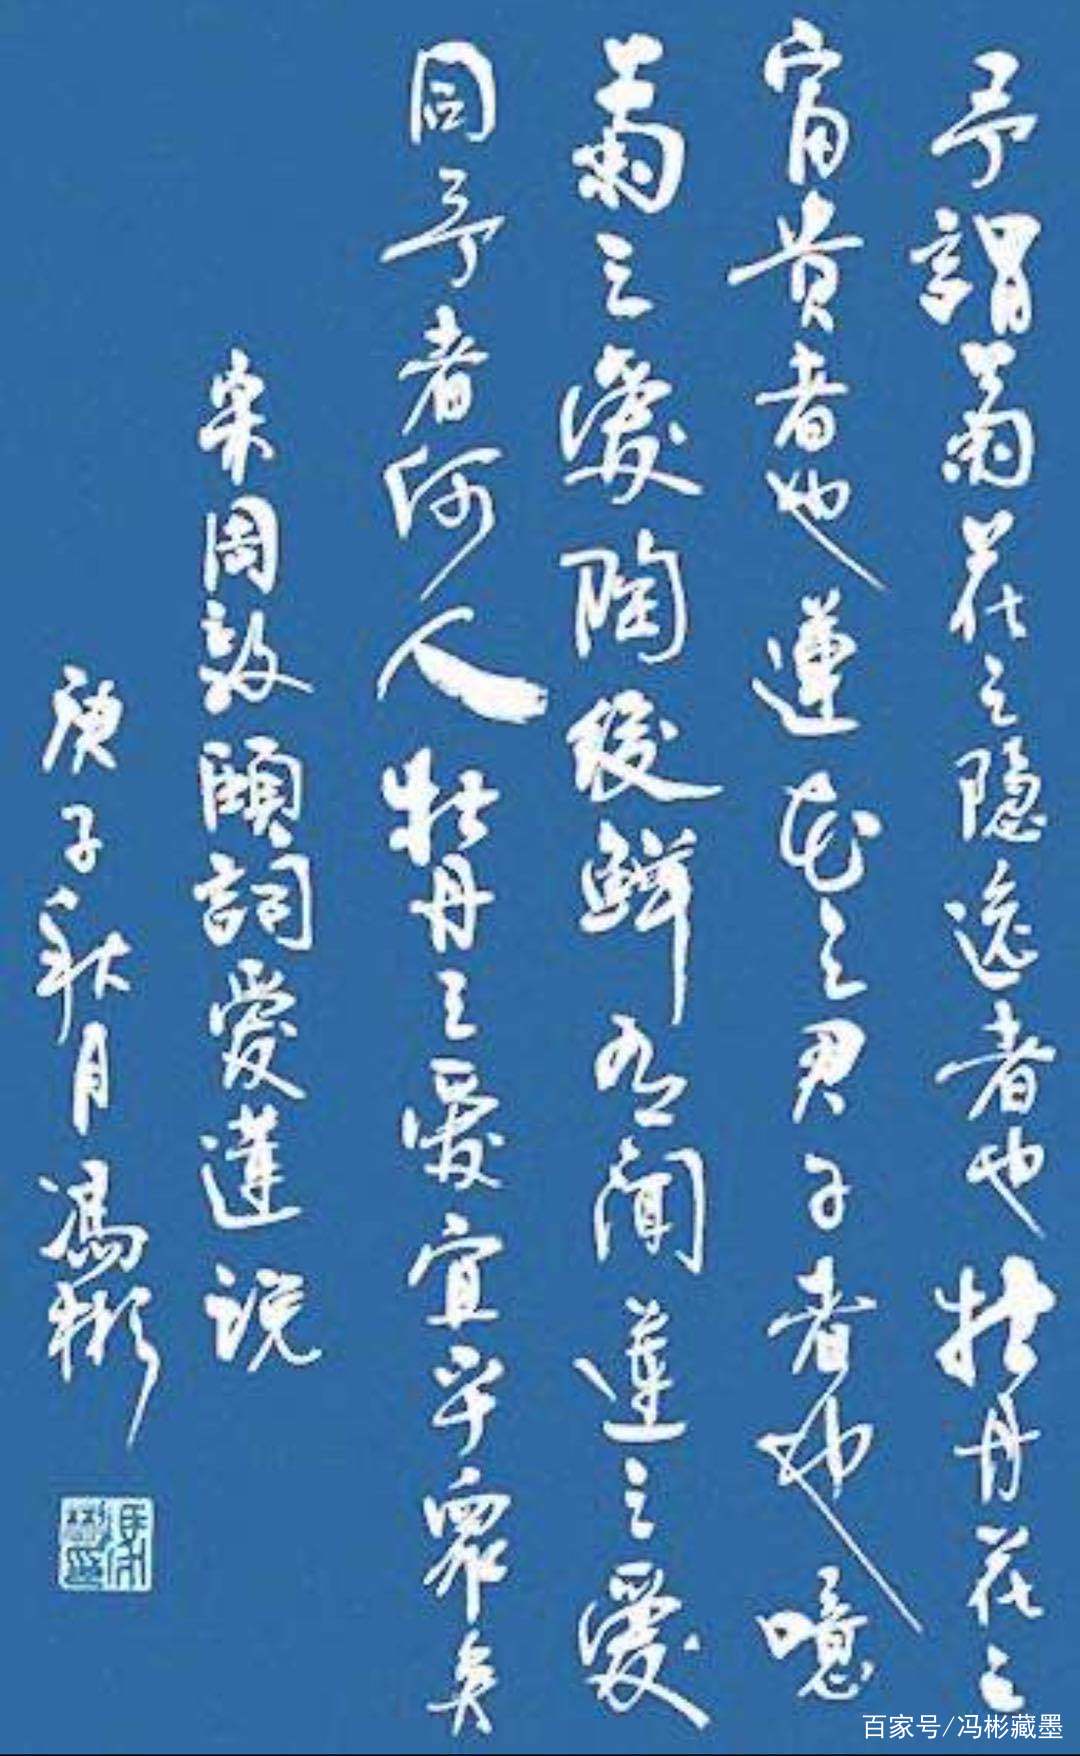 予謂菊花之隐逸者也牡丹花之
富貴者也蓮花之君子者也噫
菊之愛陶後鮮有聞蓮之愛
同予者何人牡丹之愛宜乎眾矣
宋周敦頤詞愛蓮説
庚子秋月馮彬
百家号/冯彬藏墨